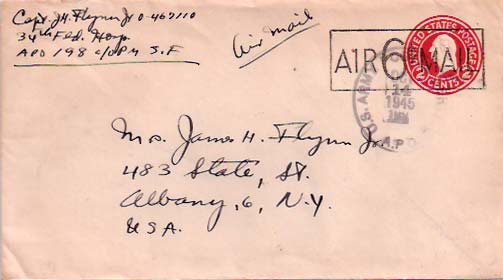 Capt. J.H. Flynn Jr O-467110
34th Fld. Hosp.
APO 198 c/o PM S.F
Air mail
AIR 6¢ MAIL
UNITED STATES POSTAGE
2 CENTS 2
U.S. ARMY
14
1945
A.P.O.
Mrs. James H. Flynn Jr.
483 State, St.
Albany, 6, N.Y.
USA.